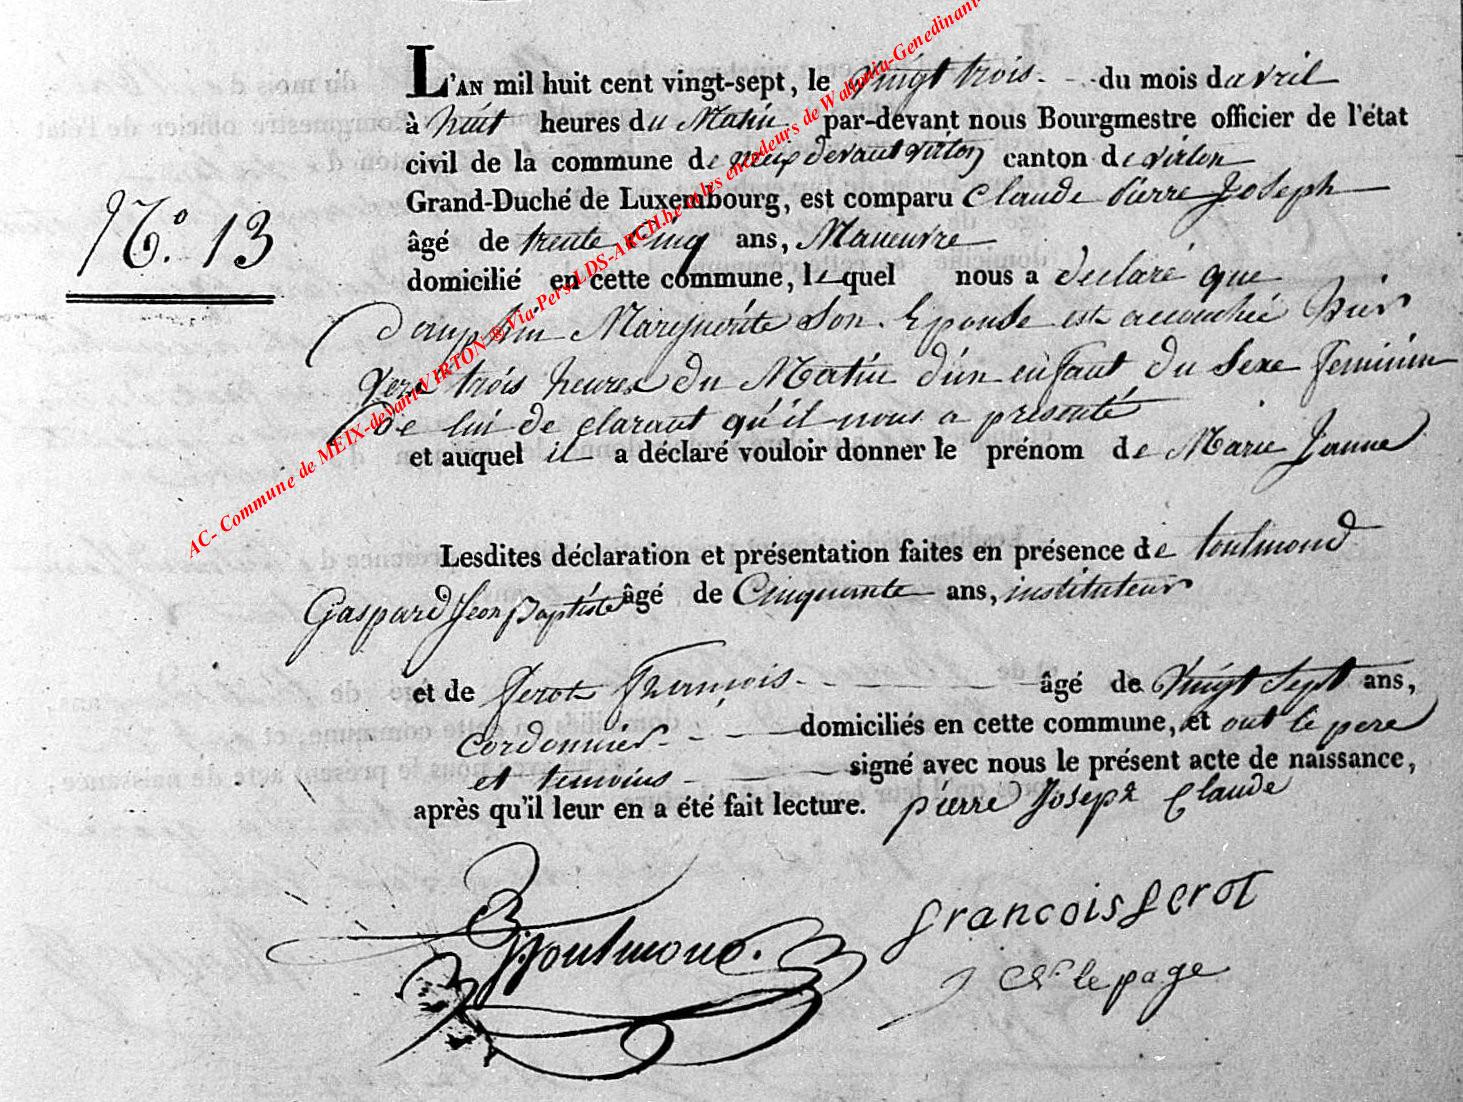 L'AN mil huit cent vingt-sept, le Vingt trois du mois d'avril
à huit heures du Matin par-devant nous Bourgmestre officier de l'état
civil de la commune de meix devant virton canton de virton
Grand-Duché de Luxembourg, est comparu Claude Pierre Joseph
N.o 13
âgé de trente Cinq ans, Maneuvre
domicilié en cette commune, lequel nous a declaré que
Dauphin Marguerite son Epouse est accouchée hier
vers trois heures du Matin d'un enfant du Sexe feminin
de lui declarant qu'il nous a presenté
et auquel il a déclaré vouloir donner le prénom de Marie Janne
AC- Commune de MEIX-devant-VIRTON-®Via-Pers-LDS-ARCH.be et les encodeurs de Wallonia-Genedinant
Lesdites déclaration et présentation faites en présence de toulmond
Gaspard Jean Baptiste âgé de Cinquante ans, instituteur
et de ferot François âgé de Vingt Sept ans,
cordonnier domiciliés en cette commune, et ont le pere
et temoins signé avec nous le présent acte de naissance,
après qu'il leur en a été fait lecture. pierre Joseph Claude
Toulmond.
francois ferot
le page